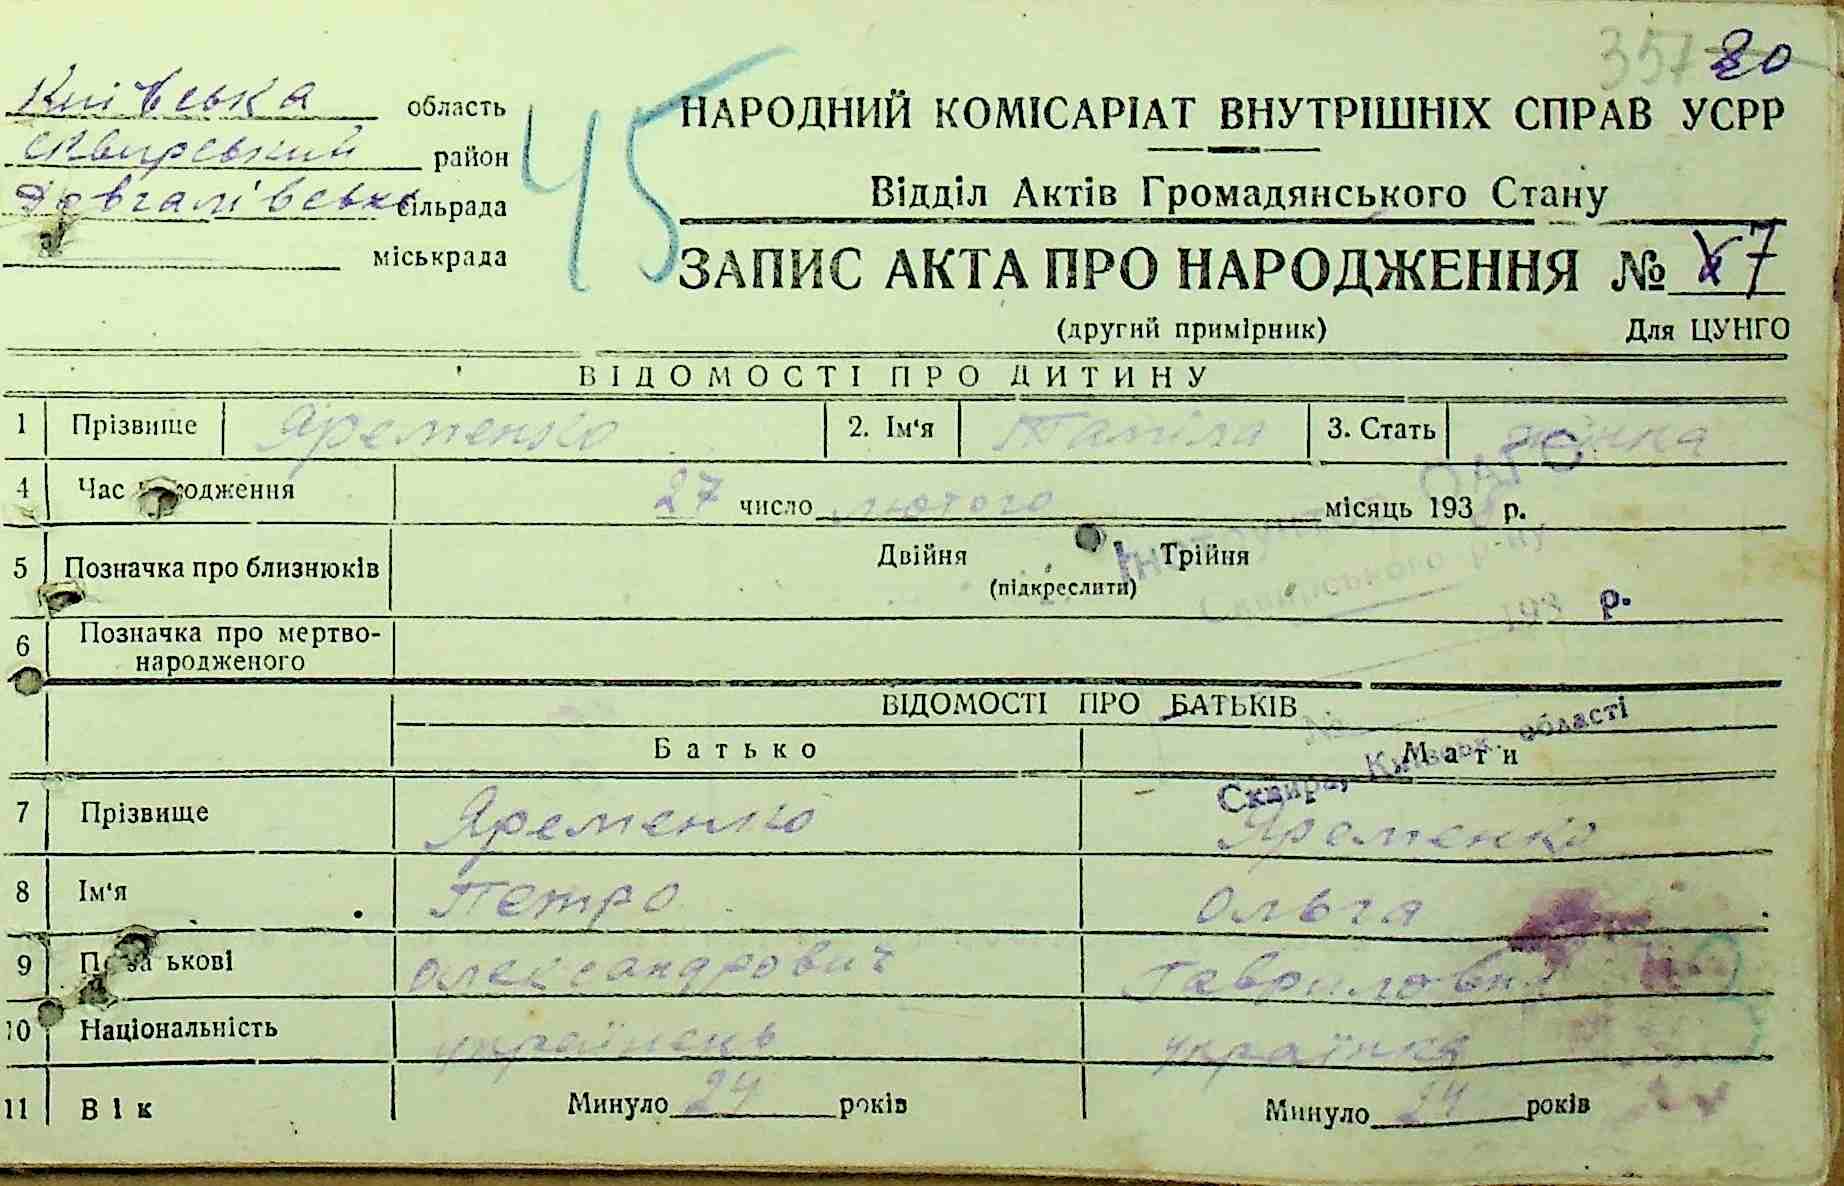 357 20
Київська область
45
НАРОДНИЙ КОМІСАРІАТ ВНУТРІШНІХ СПРАВ УСРР
Сквирський район
Відділ Актів Громадянського Стану
Довгалівська сільрада
міськрада
ЗАПИС АКТА ПРО НАРОДЖЕННЯ № 7
(другий примірник) Для ЦУНГО
ВІДОМОСТІ ПРО ДИТИНУ
1 Прізвище Яременко 2. Ім'я 3. Стать жінка
4 Час 27 число лютого місяць 193 р.
Інструктор ОАГС
5 Позначка про близнюків Двійня Трійня
(підкреслити)
Сквирського р-ну
193 р.
6 Позначка про мертво-
народженого
ВІДОМОСТІ ПРО БАТЬКІВ
№
Сквира, Київськ. області
Батько Мати
7 Прізвище Яременко Яременко
8 Ім'я Петро Ольга
9 По батькові Олександрович Гавриловна
10 Національність українець українка
11 Вік Минуло 24 років Минуло 24 років